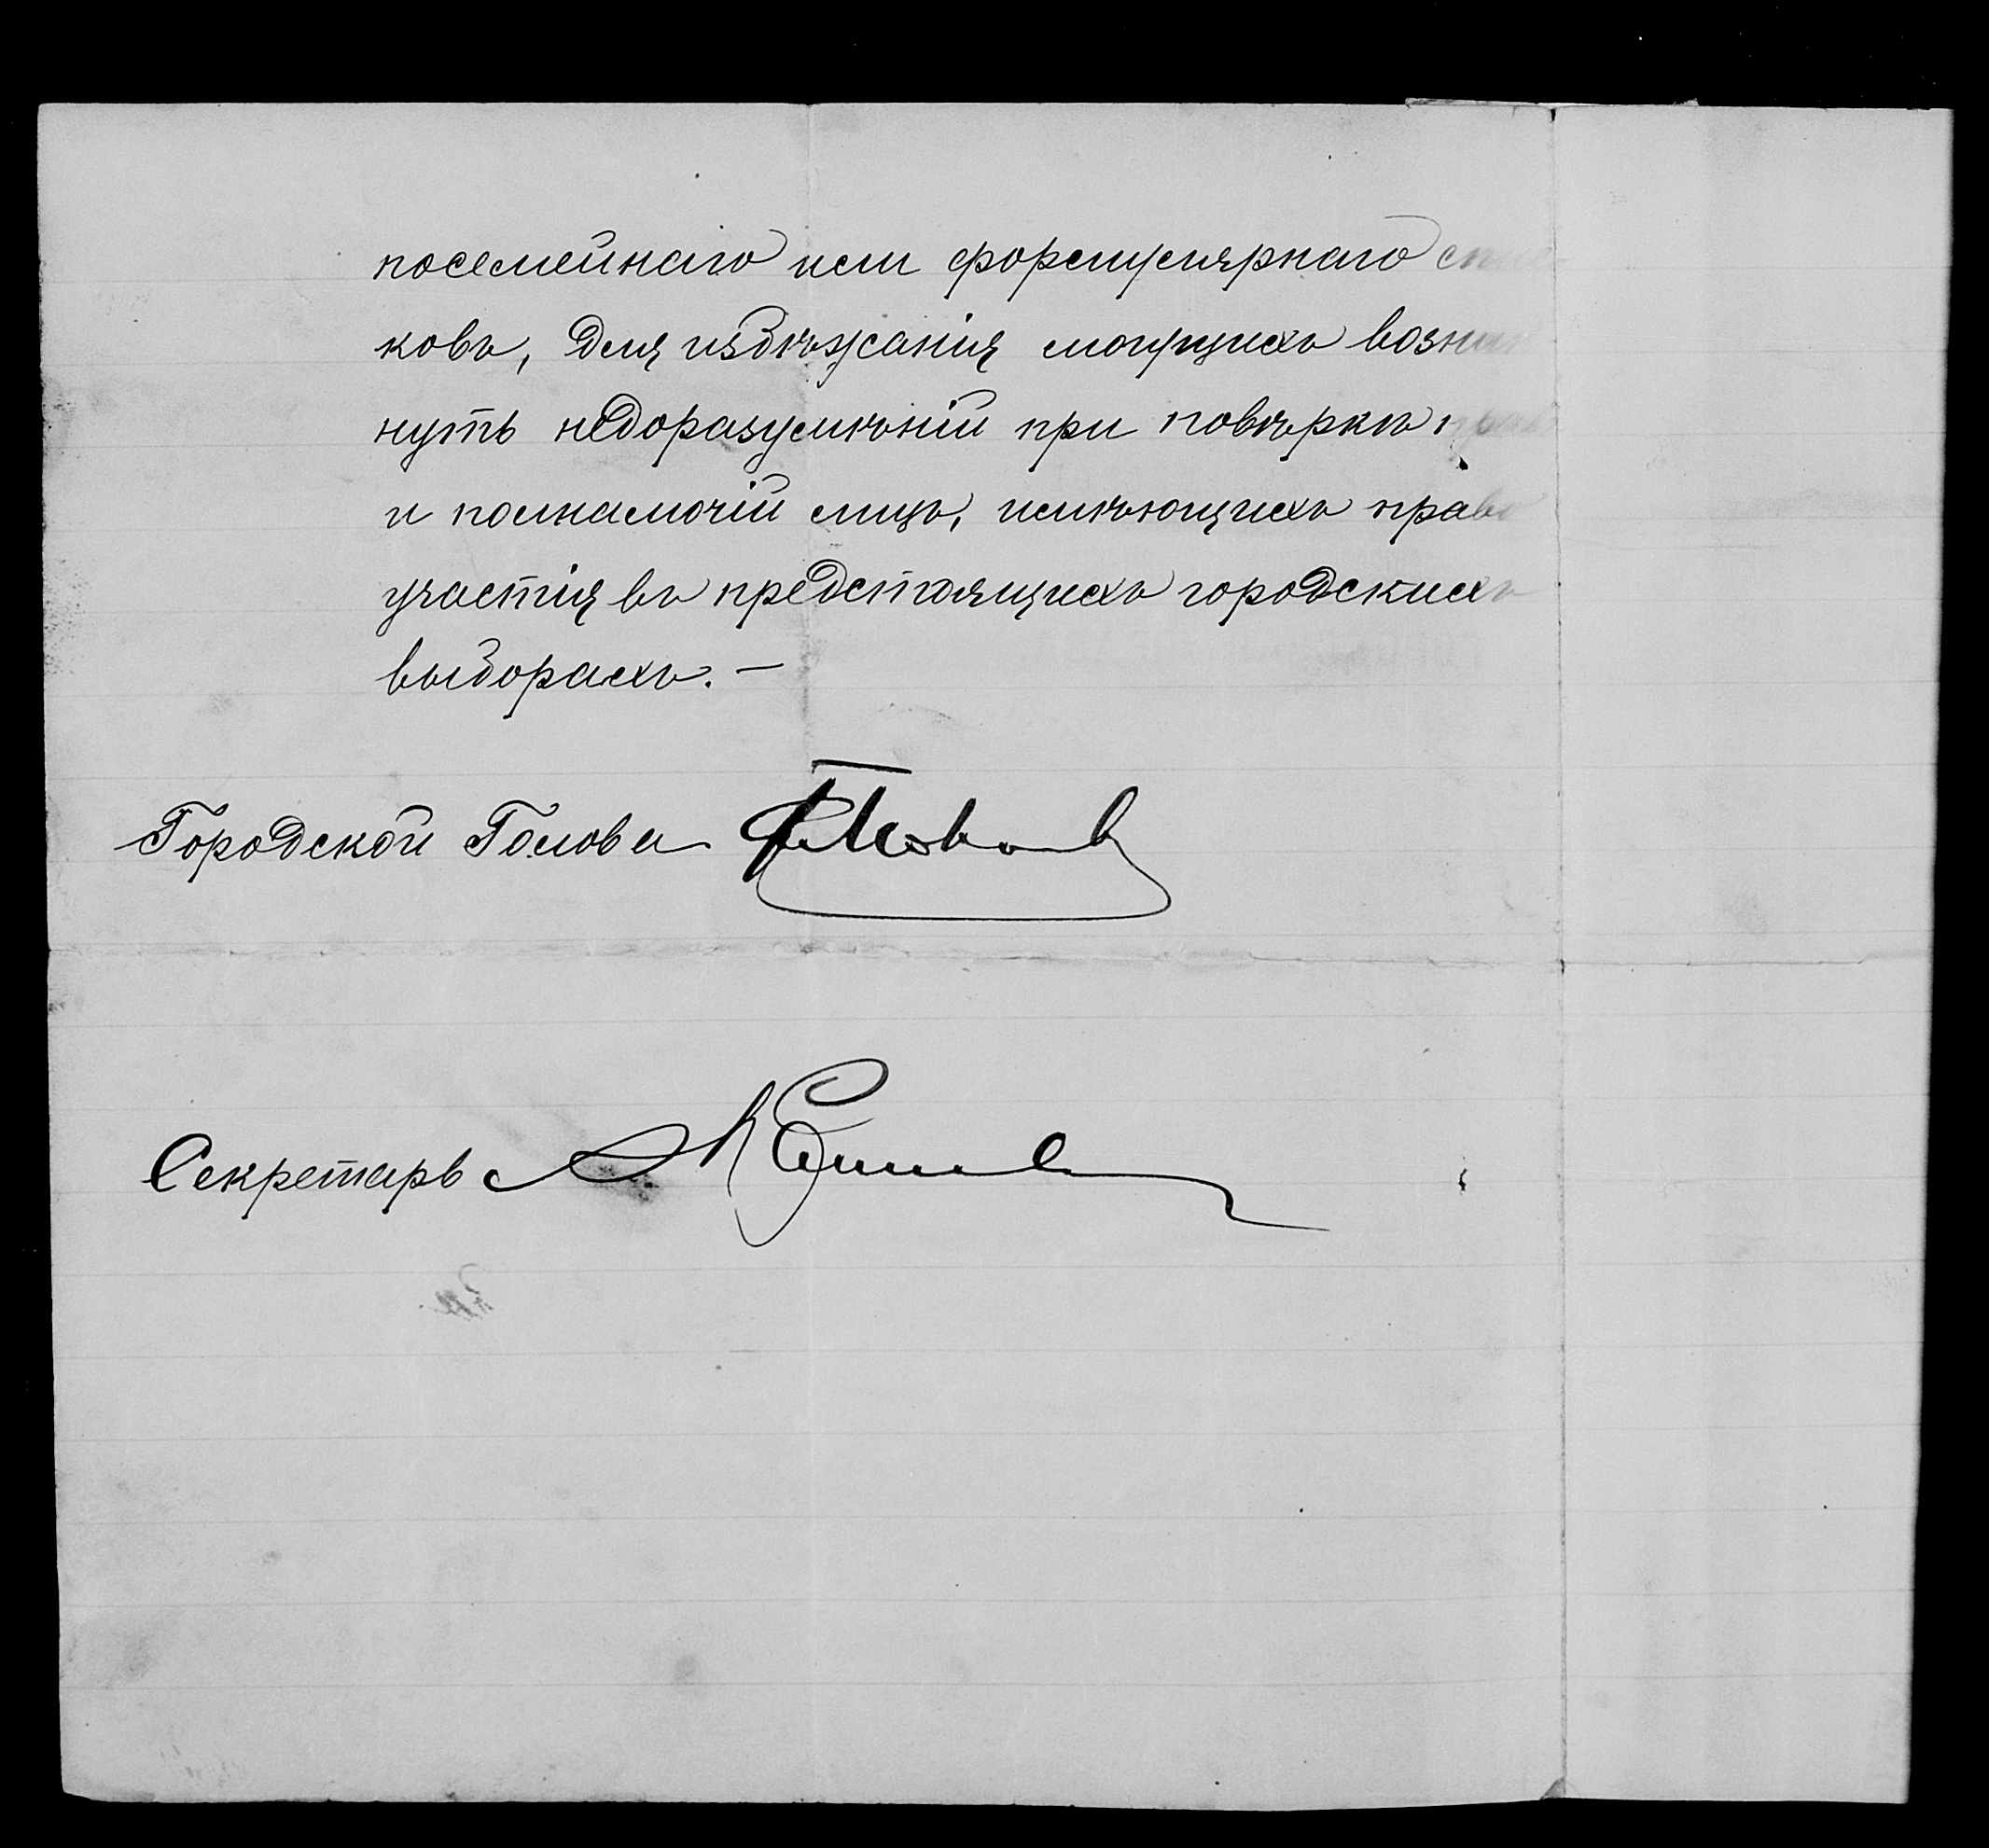 посемейнаго или формулярнаго
ковъ, для избѣжанія могущихъ возник
нуть недоразумѣній при повѣркѣ прав
и полнамочій лицъ, имѣющихъ право
участія въ предстоящихъ городскихъ
выборахъ. —
Городской Голова
Секретарь